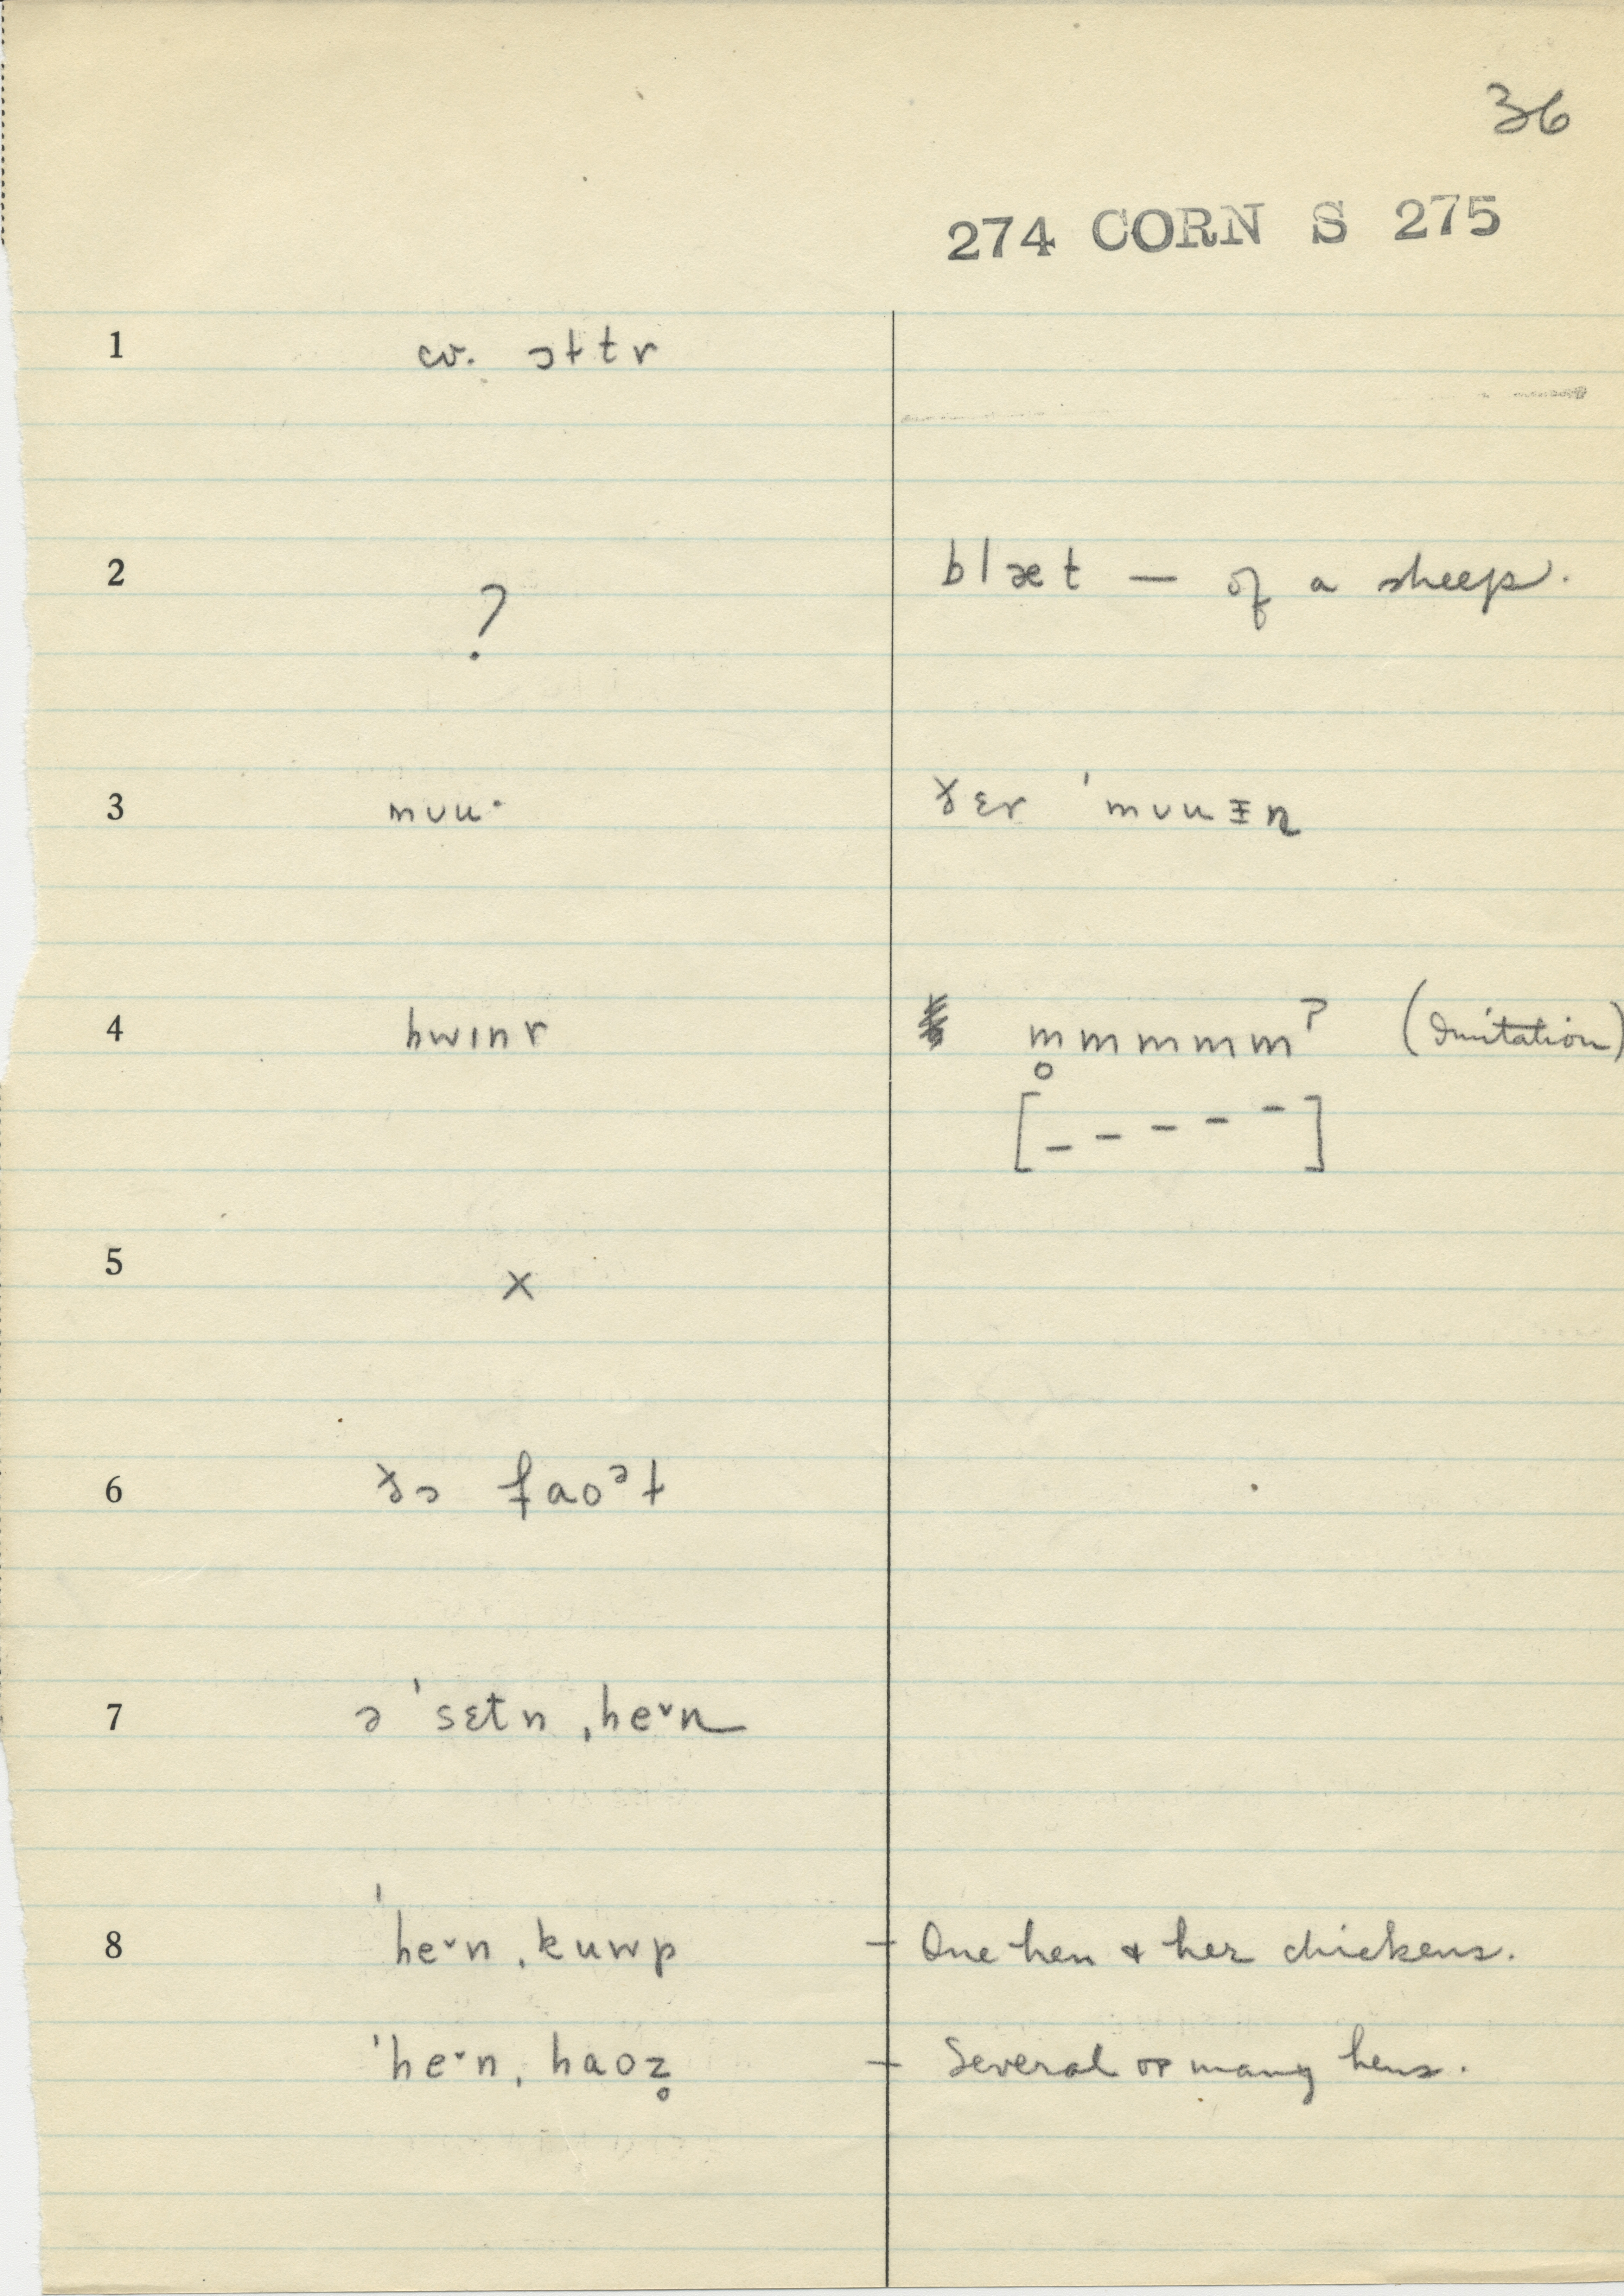 36
274 CORN S 275
1 cv. ɔɫtr
2 ? blæt — of a sheep.
3 mʊu· ðɛr ˈmʊuɪn
4 hwɪnr m̥mmmmˀ (Imitation)
[– – – – –]
5 x
6 ðə faoᵊɫ
7 ə ˈsɛtn ˌhe˅n
8 ˈhe˅n ˌkuwp – One hen & her chickens.
ˈhe˅n ˌhaoz̥ – Several or many hens.